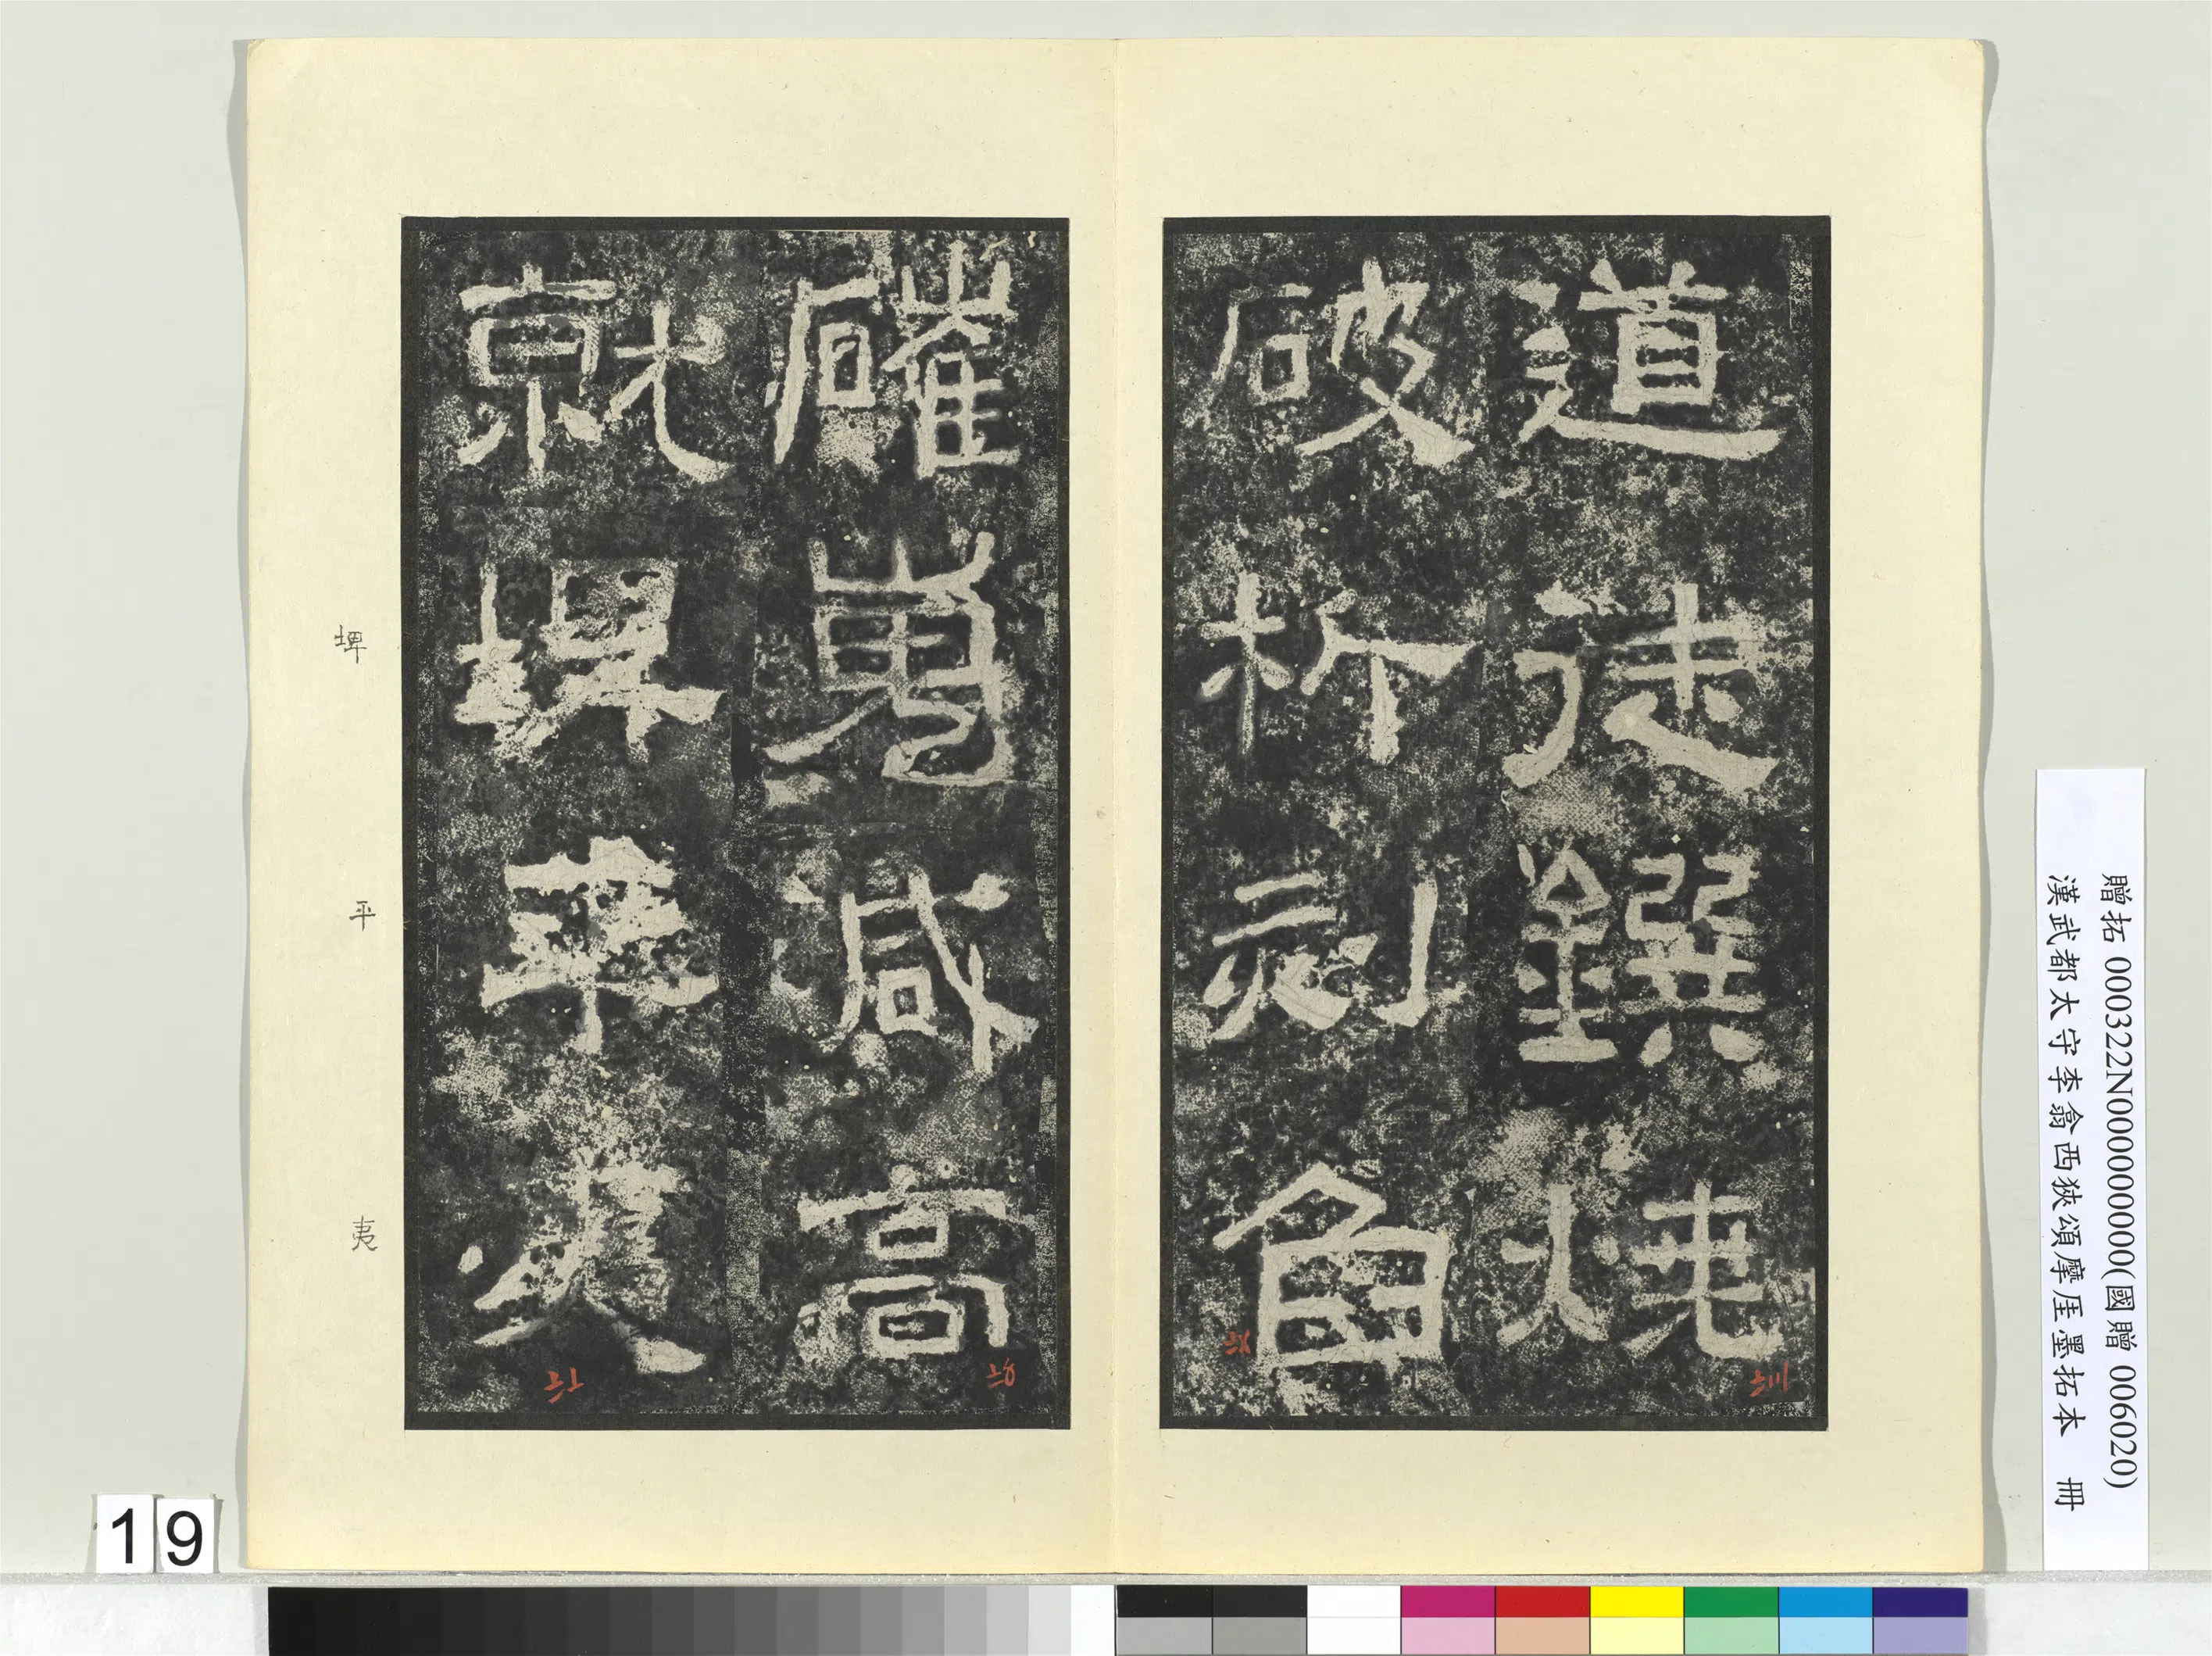 道徒鐉燒
破析刻臽
磪嵬減高
就埤平夷
埤
平
夷
贈拓 000322N000000000(國贈 006020)
漢武都太守李翕西狹頌摩厓墨拓本 冊
19